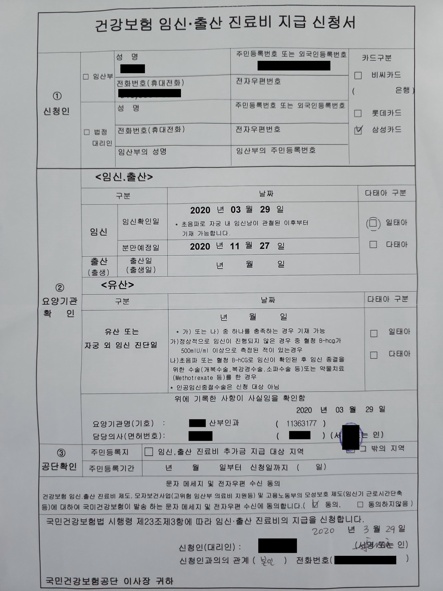 건강보험 임신·출산 진료비 지급 신청서
① 신청인
□ 임산부
성 명
주민등록번호 또는 외국인등록번호
카드구분
전화번호(휴대전화)
전자우편번호
□ 비씨카드
( 은행)
□ 법정대리인
성 명
주민등록번호 또는 외국인등록번호
□ 롯데카드
전화번호(휴대전화)
전자우편번호
☑ 삼성카드
임산부의 성명
임산부의 주민등록번호
② 요양기관 확 인
<임신.출산>
구분
날짜
다태아 구분
임신
임신확인일
2020 년 03 월 29 일
• 초음파로 자궁 내 임신낭이 관찰된 이후부터
기재 가능합니다
□ 일태아
분만예정일
2020 년 11 월 27 일
□ 다태아
출산(출생)
출산일(출생일)
년 월 일
<유산>
구분
날짜
다태아 구분
유산 또는
자궁 외 임신 진단일
년 월 일
• 가) 또는 나) 중 하나를 충족하는 경우 기재 가능
가)정상적으로 임신이 진행되지 않은 경우 중 혈청 B-hcg가
500mIU/ml 이상으로 측정된 적이 있는경우
나)초음파 또는 혈청 B-hCG로 임신이 확인된 후 임신 중결을
위한 수술(개복수술,복강경수술,소파수술 등)또는 약물치료
(Methotrexate 등)를 한 경우
• 인공임신중절수술은 신청 대상 아님
□ 일태아
□ 다태아
위에 기록한 사항이 사실임을 확인함
2020 년 03 월 29 일
요양기관명(기호) : 산부인과 ( 11363177 )
담당의사(면허번호): ( ) (서 는 인)
③ 공단확인
주민등록지
□ 임신,출산 진료비 추가금 지급 대상 지역
□ 그 밖의 지역
주민등록기간
년 월 일부터 신청일까지 ( 일)
문자 메세지 및 전자우편 수신 동의
건강보험 임신.출산 진료비 제도, 모자보건사업(고위험 임산부 의료비 지원등) 및 고용노동부의 모성보호 제도(임신기 근로시간단축
등)에 대하여 국민건강보험이 발행 하는 문자 메세지 및 전자우편 수신에 동의합니다.( ☑ 동의, □ 동의하지않음 )
국민건강보험법 시행령 제23조제3항에 따라 임신·출산 진료비의 지급을 신청합니다.
2020 년 3 월 29 일
신청인(대리인) : (서명 또는 인)
신청인과의의 관계 ( 본인 ) 전화번호( )
국민건강보험공단 이사장 귀하